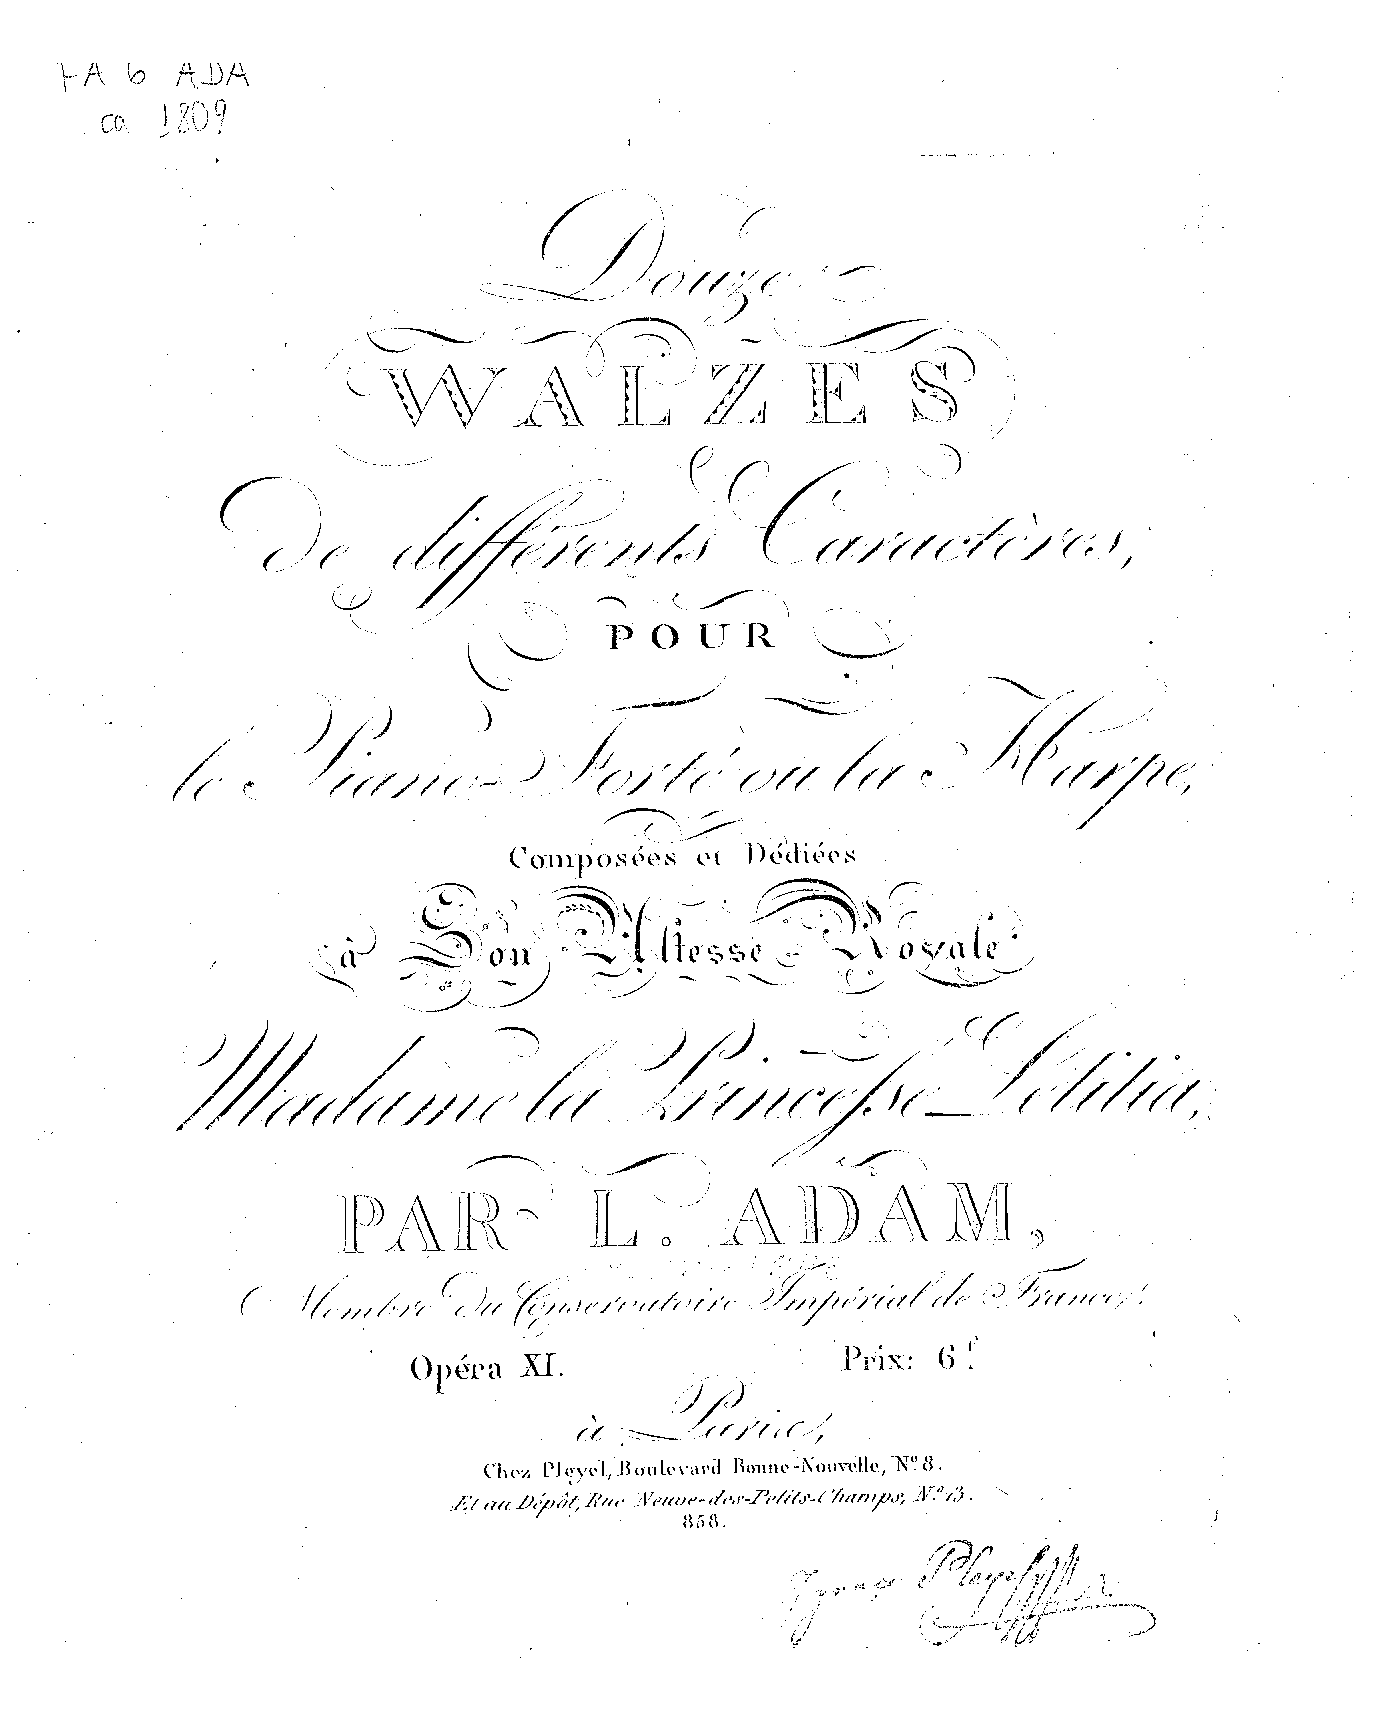 FA 6 ADA
ca 1809
Douze
WALZES
De différents Caractères,
POUR
le Piano-Forté ou la Harpe,
Composées et Dédiées
à Son Altesse Royale
Madame la Princesse Létitia,
PAR L. ADAM,
Membre du Conservatoire Impérial de France.
Opéra XI. Prix: 6f.
à Paris,
Chez Pleyel, Boulevard Bonne-Nouvelle, No 8.
Et au Dépôt, Rue Neuve-des-Petits-Champs, No 13.
858.
Ignace Pleyel